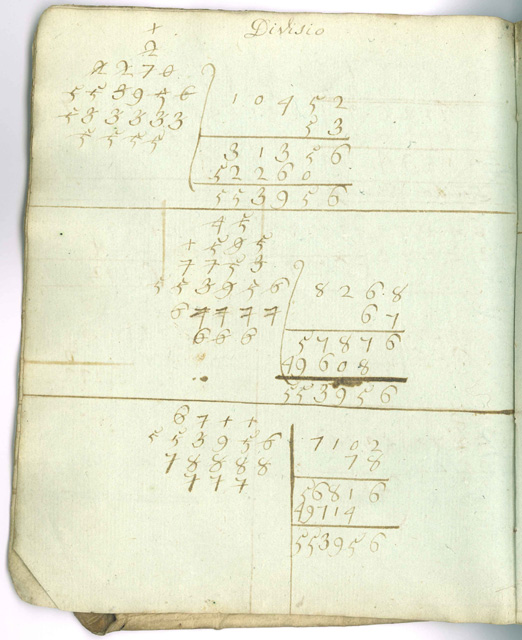 Divisio
+
2
2 2 7 0
5 5 3 9 5 6
5 3 3 3 3 3
5 5 5 5
1 0 4 5 2
5 3
3 1 3 5 6
5 2 2 6 0
5 5 3 9 5 6
4 5
+ 5 9 5
7 7 5 3
5 5 3 9 5 6
6 7 7 7 7
6 6 6
8 2 6 8
6 7
5 7 8 7 6
4 9 6 0 8
5 5 3 9 5 6
6 7 + +
5 5 3 9 5 6
7 8 8 8 8
7 7 7
7 1 0 2
7 8
5 6 8 1 6
4 9 7 1 4
5 5 3 9 5 6